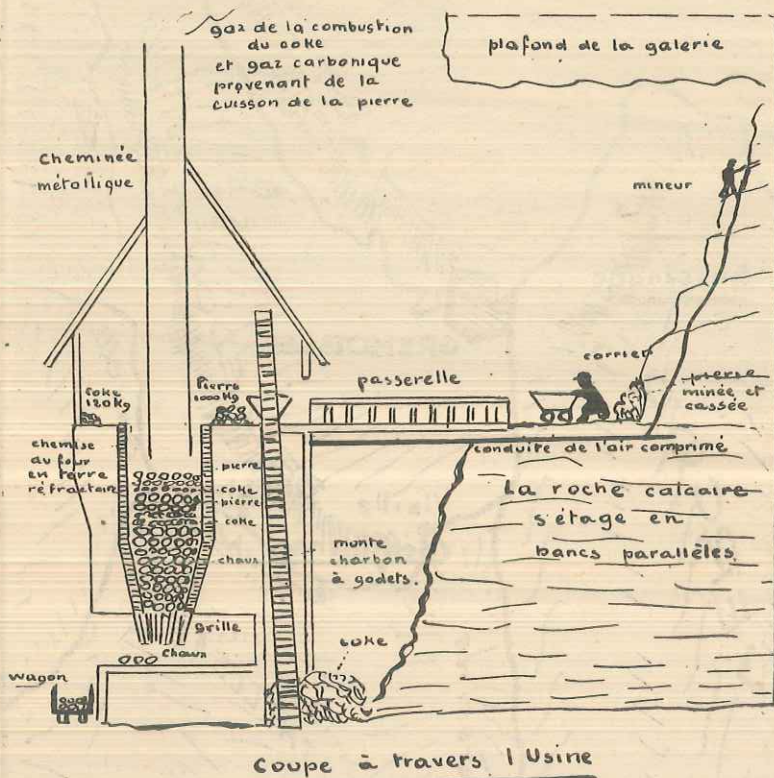 gaz de la combustion
du coke
et gaz carbonique
provenant de la
cuisson de la pierre
plafond de la galerie
Cheminée
métallique
mineur
carrier
pierre
minée et
cassée
passerelle
Coke
120 Kg
Pierre
1000 Kg
chemise
du four
en terre
réfractaire
pierre
coke
pierre
coke
chaux
conduite de l'air comprimé
La roche calcaire
s'étage en
bancs parallèles
monte
charbon
à godets.
Grille
chaux
coke
wagon
Coupe à travers l Usine